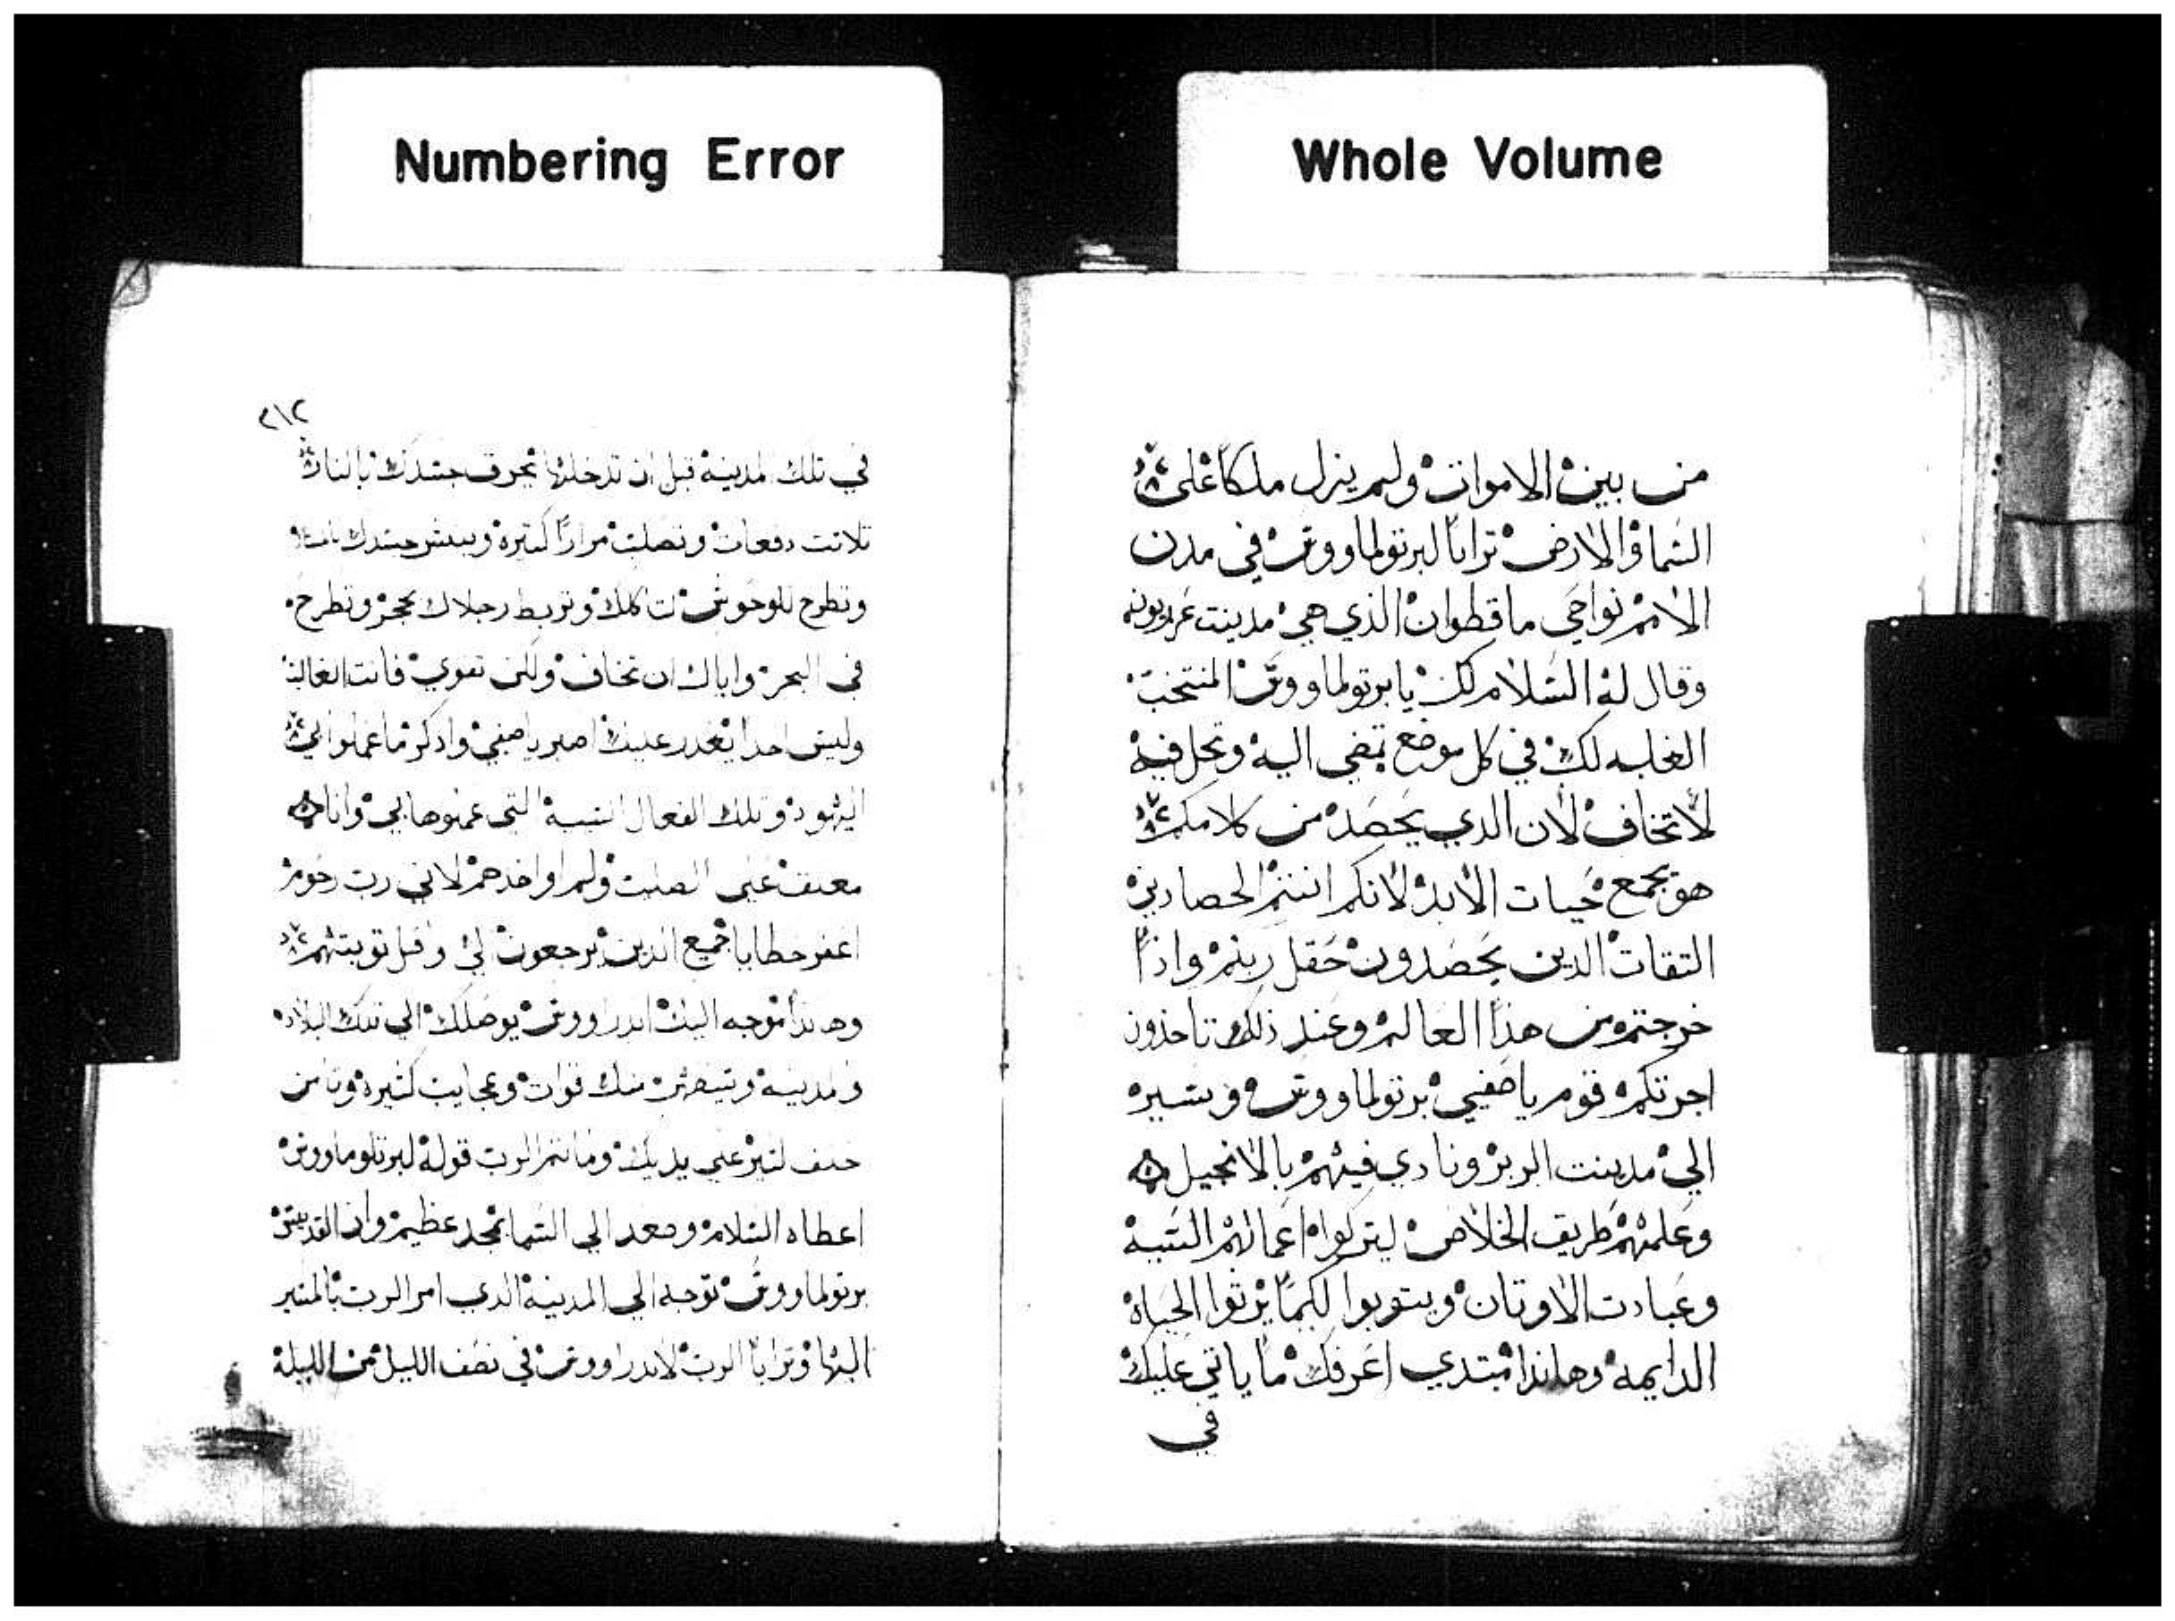 Numbering Error
Whole Volume
من بين الاموات ولم يزل ملكا على
السما والارض ترايا لبرتولماووس في مدن
الامم نواحي ماقطوان الذي هي مدينت
وقال له السلام لك يا برتولماووس المنتخب
الغلبه لك في كل موضع تمضي اليه وتحل فيه
لا تخاف لان الدي يحصد من كلامكم
هو يجمع حيات الابد لانكم انتم الحصادين
التقات الدين يحصدون حقل ربهم واذا
خرجتم من هذا العالم وعند ذلك تاخدون
اجرتكم قوم يا صفيي برتولماووس وسير
الي مدينت البربر ونادي فيهم بالانجيل
وعلمهم طريق الخلاص ليتركوا اعمالهم السيه
وعبادت الاوتان ويتوبوا لكيما يرثوا الحياه
الدايمه وهانذا مبتدي اعرفك ما ياتي عليك
في
٢١٢
في تلك المدينه قبل ان تدخلها تحرق جسدك بالنار
تلاتت دفعات وتصلب مرارا كتيره وينشر جسدك
وتطرح للوحوش تاكلك وتربط رجلاك بحجر وتطرح
في البحر واياك ان تخاف ولكن تقوي فانت الغالب
وليس احدا يقدر عليك اصبر يا صفيي وادكر ما عملوا لي
اليهود وتلك الفعال السيه التي عملوها بي وانا
معلق علي الصليب ولم اواخدهم لاني رب رحوم
اغفر خطايا جميع الدين يرجعون الي واقبل توبتهم
وهانذا موجه اليك اندراووس يوصلك الي تلك البلاد
والمدينه وسيظهر منك قوات وعجايب كتيره ويامن
خلق كتير علي يديك وما تمم الرب قوله لبرتلوماووس
اعطاه السلام وصعد الي السما بمجد عظيم وان القديس
برتولماووس توجه الي المدينه الدي امر الرب بالمسير
اليها وترايا الرب لاندراووس في نصف الليل من الليله